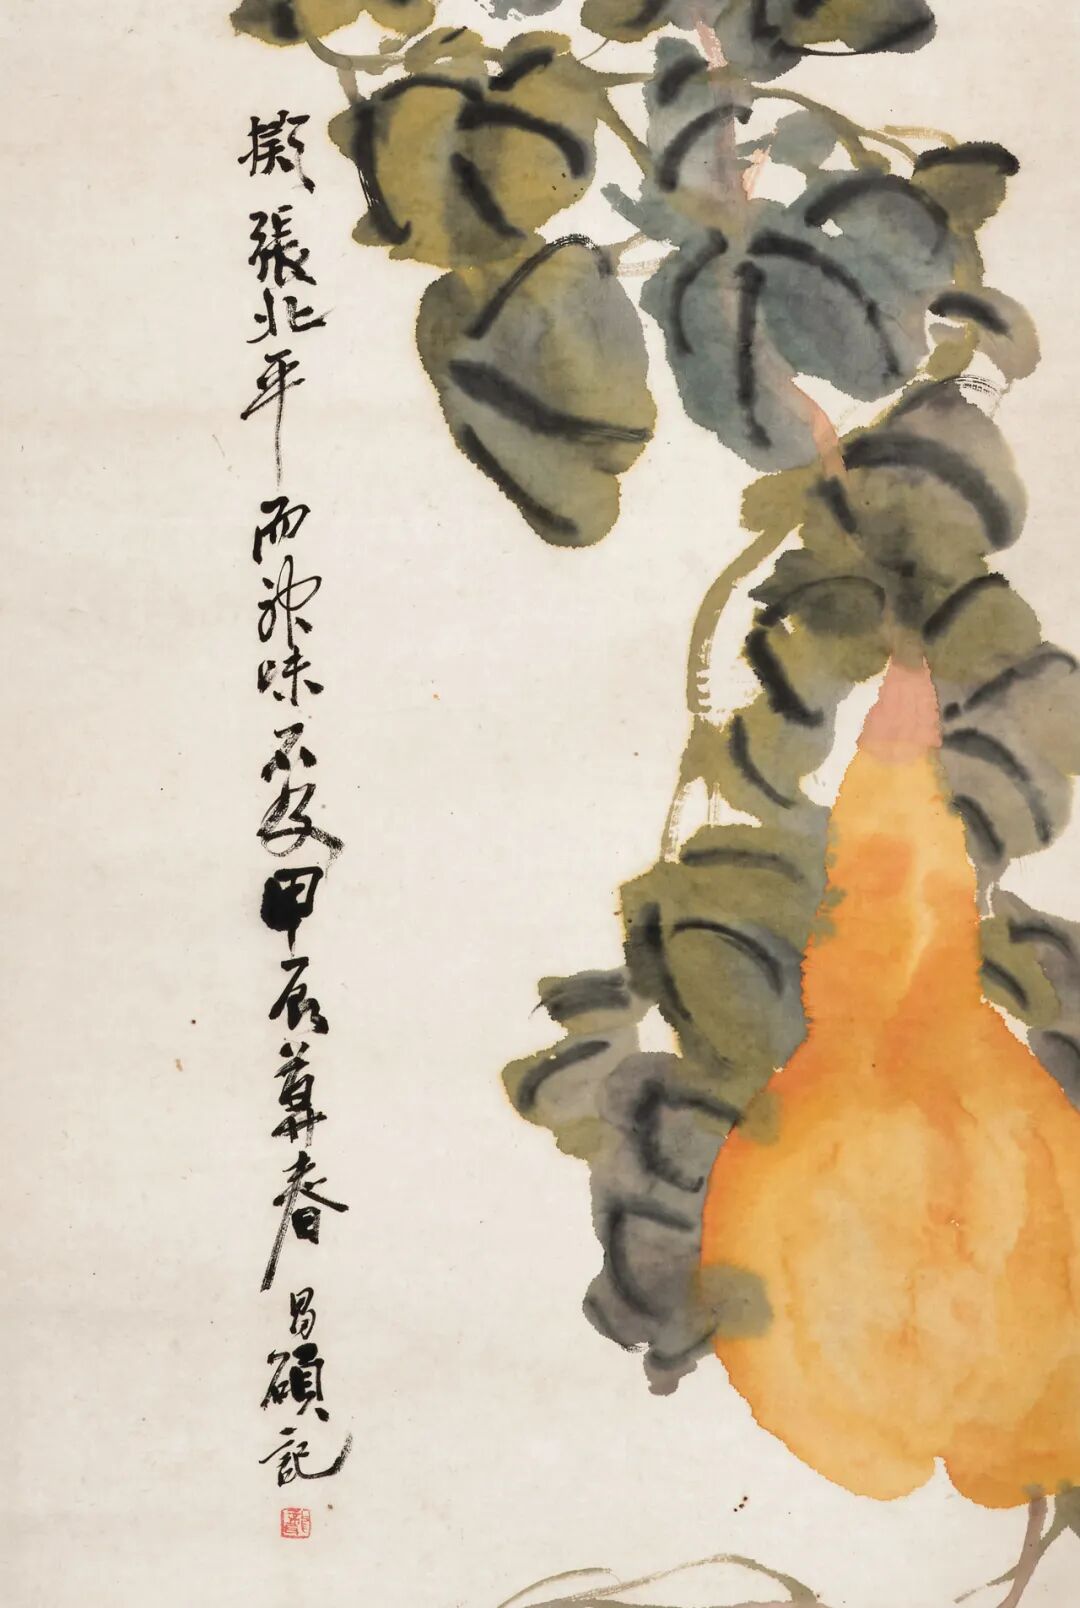 擬張北平而神味不及甲辰莫春昌碩記